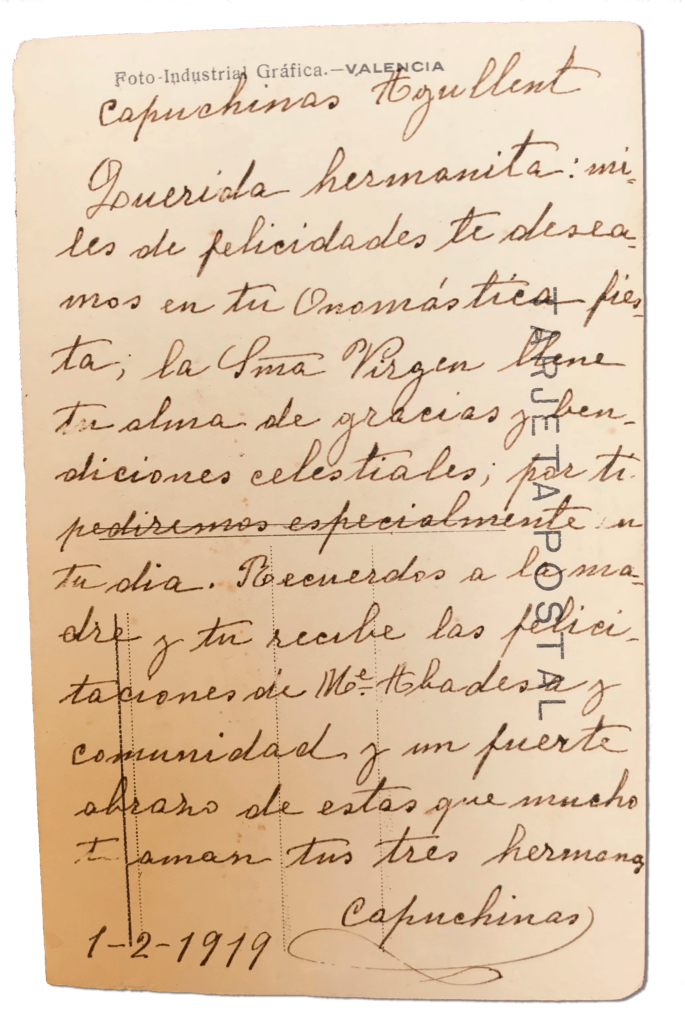 Foto-Industrial Gráfica.—VALENCIA
Capuchinas Agullent
Querida hermanita: mi-
les de felicidades te desea-
mos en tu Onomástica fies-
ta; la Sma Virgen llene
tu alma de gracias y ben-
diciones celestiales; por ti
pediremos especialmente en
tu dia. Recuerdos a la ma-
dre y tu recibe las felici-
taciones de Me. Abadesa y
comunidad y un fuerte
abrazo de estas que mucho
te aman tus tres hermanas
Capuchinas
1-2-1919
TARJETA POSTAL